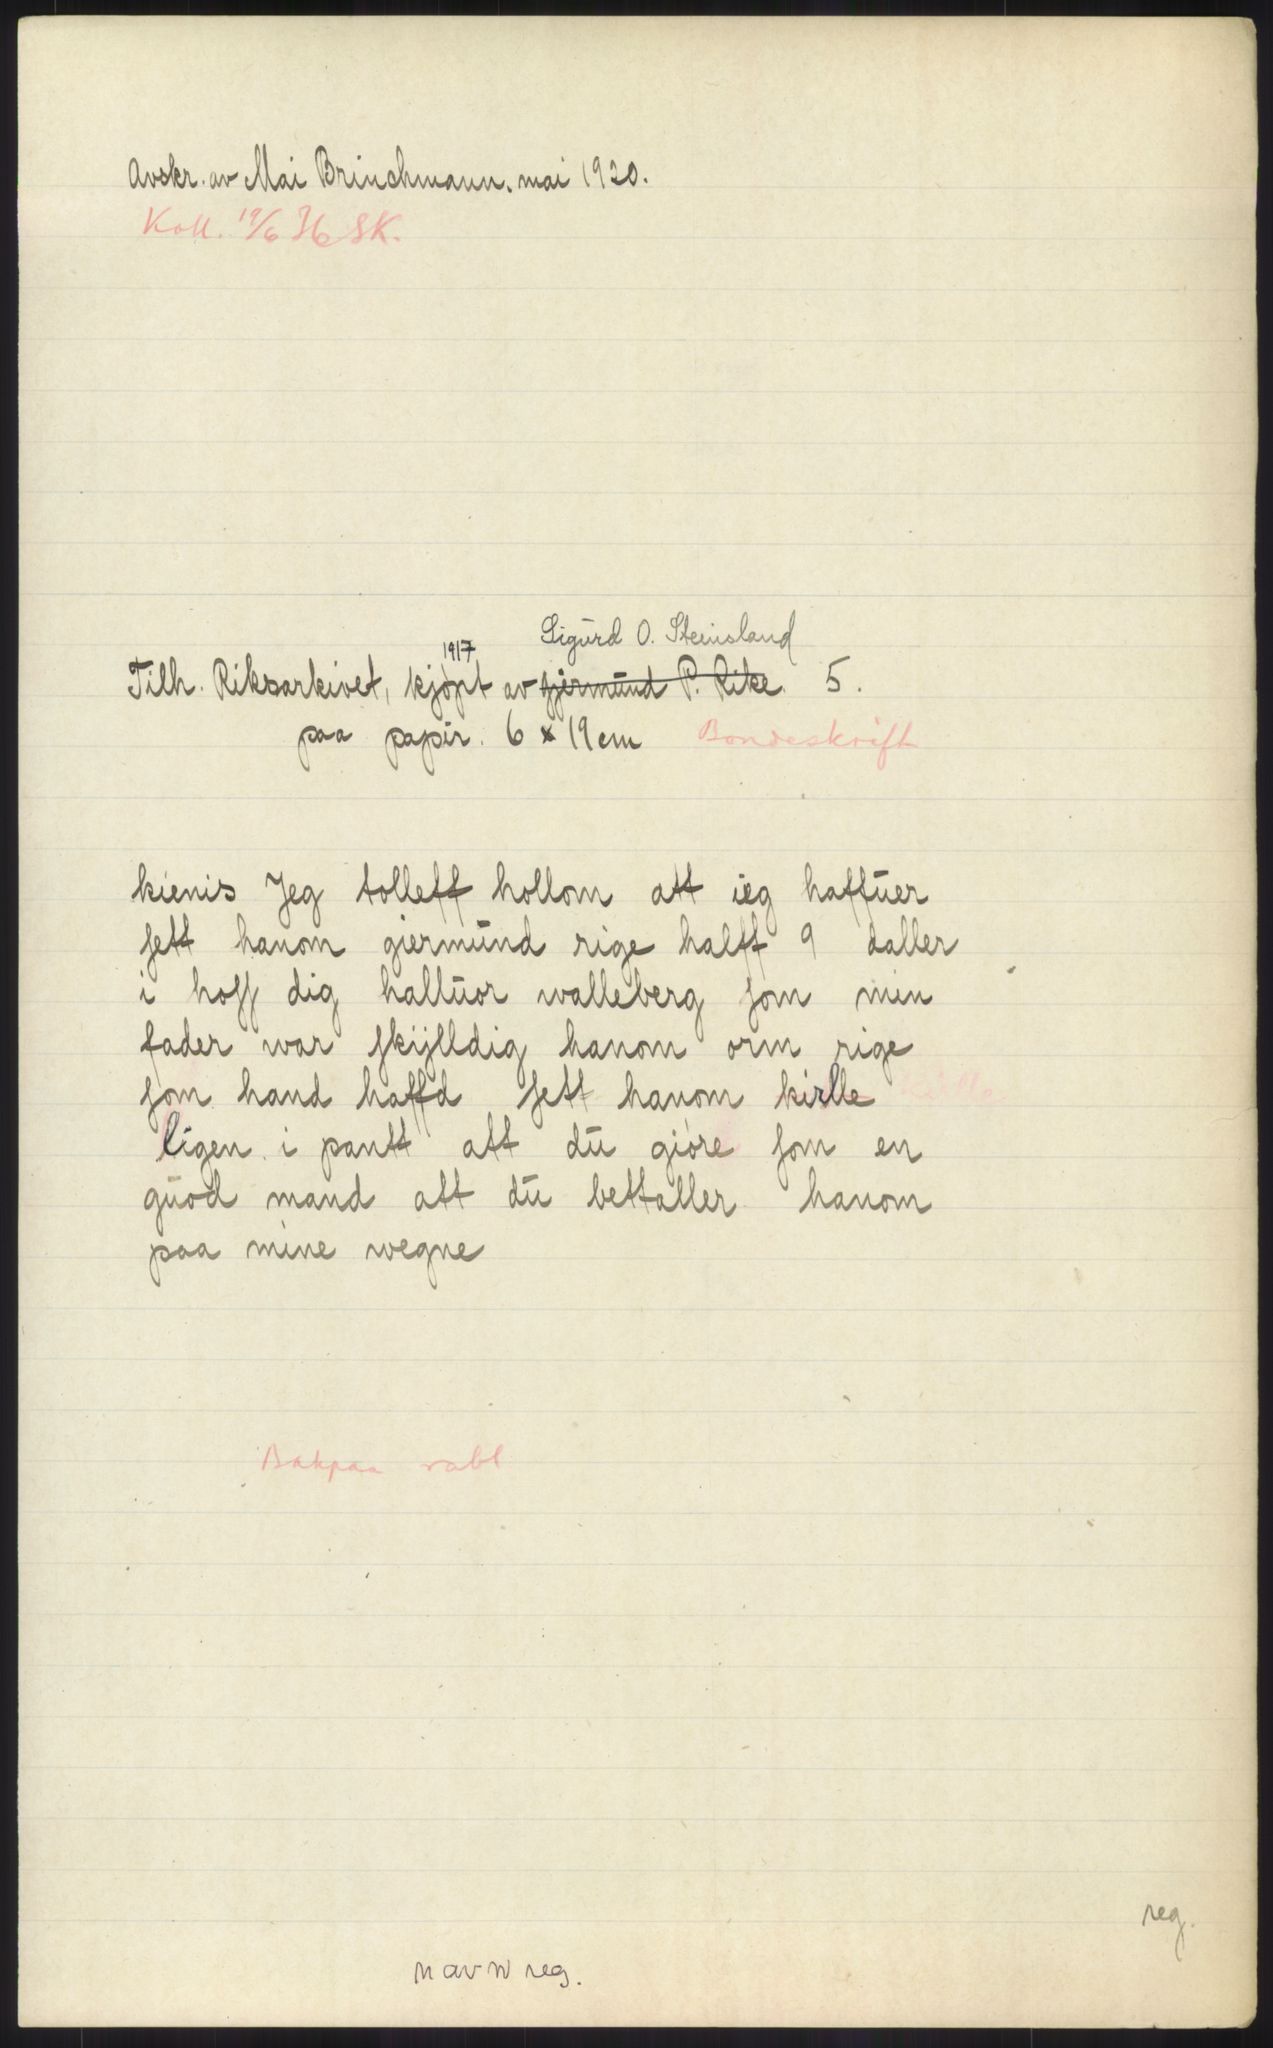 Avskr. av Mai Brinchmann. mai 1920.
Koll. 19/6 36 SK.
Sigurd O. Steinsland
1917
Tilh. Riksarkivet, kjøpt av Gjermund P. Rike. 5.
paa papir. 6 x 19 cm Bondeskrift
kienis Jeg tolleff hollom att ieg haffuer
sett hanom giermund rige halff 9 daller
i hoss dig halluor walleberg som min
fader war skÿlldig hanom orm rige
som hand haffd sett hanom kirlle
ligen i pantt att du giøre som en
guod mand att du bettaller hanom
paa mine wegne
Bakpaa rabl
reg.
navn reg.